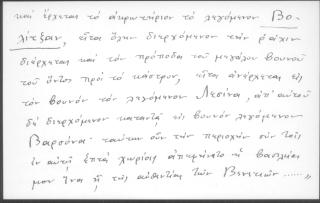 καὶ ἔρχεται τὸ ἀκρωτήριον τὸ λεγόμενον Βο-
λίτζαν, εἶται ὅλην διερχόμενον τὴν ῥάχιν
διέρχεται καὶ τὸν πρόποδα τοῦ μεγάλου βουνοῦ
τοῦ ὄντος πρὸς τὸ κάστρον, εἶται ἀνέρχεται εἰς
τὸν βουνὸν τὸν λεγόμενον Λεσίνα, ἀπ' αὐτοῦ
δὲ διερχόμενον καταντᾷ εἰς βουνὸν λεγόμενον
Βαρσόνα· ταύτην οὖν τὴν περιοχὴν σὺν τοῖς
ἐν αὐτῇ ἑπτὰ χωρίοις ἀπεχαρίσατο ἡ βασιλεία
μου ἵνα ᾖ τῆς αὐθεντίας τῶν Βενετικῶν ......»